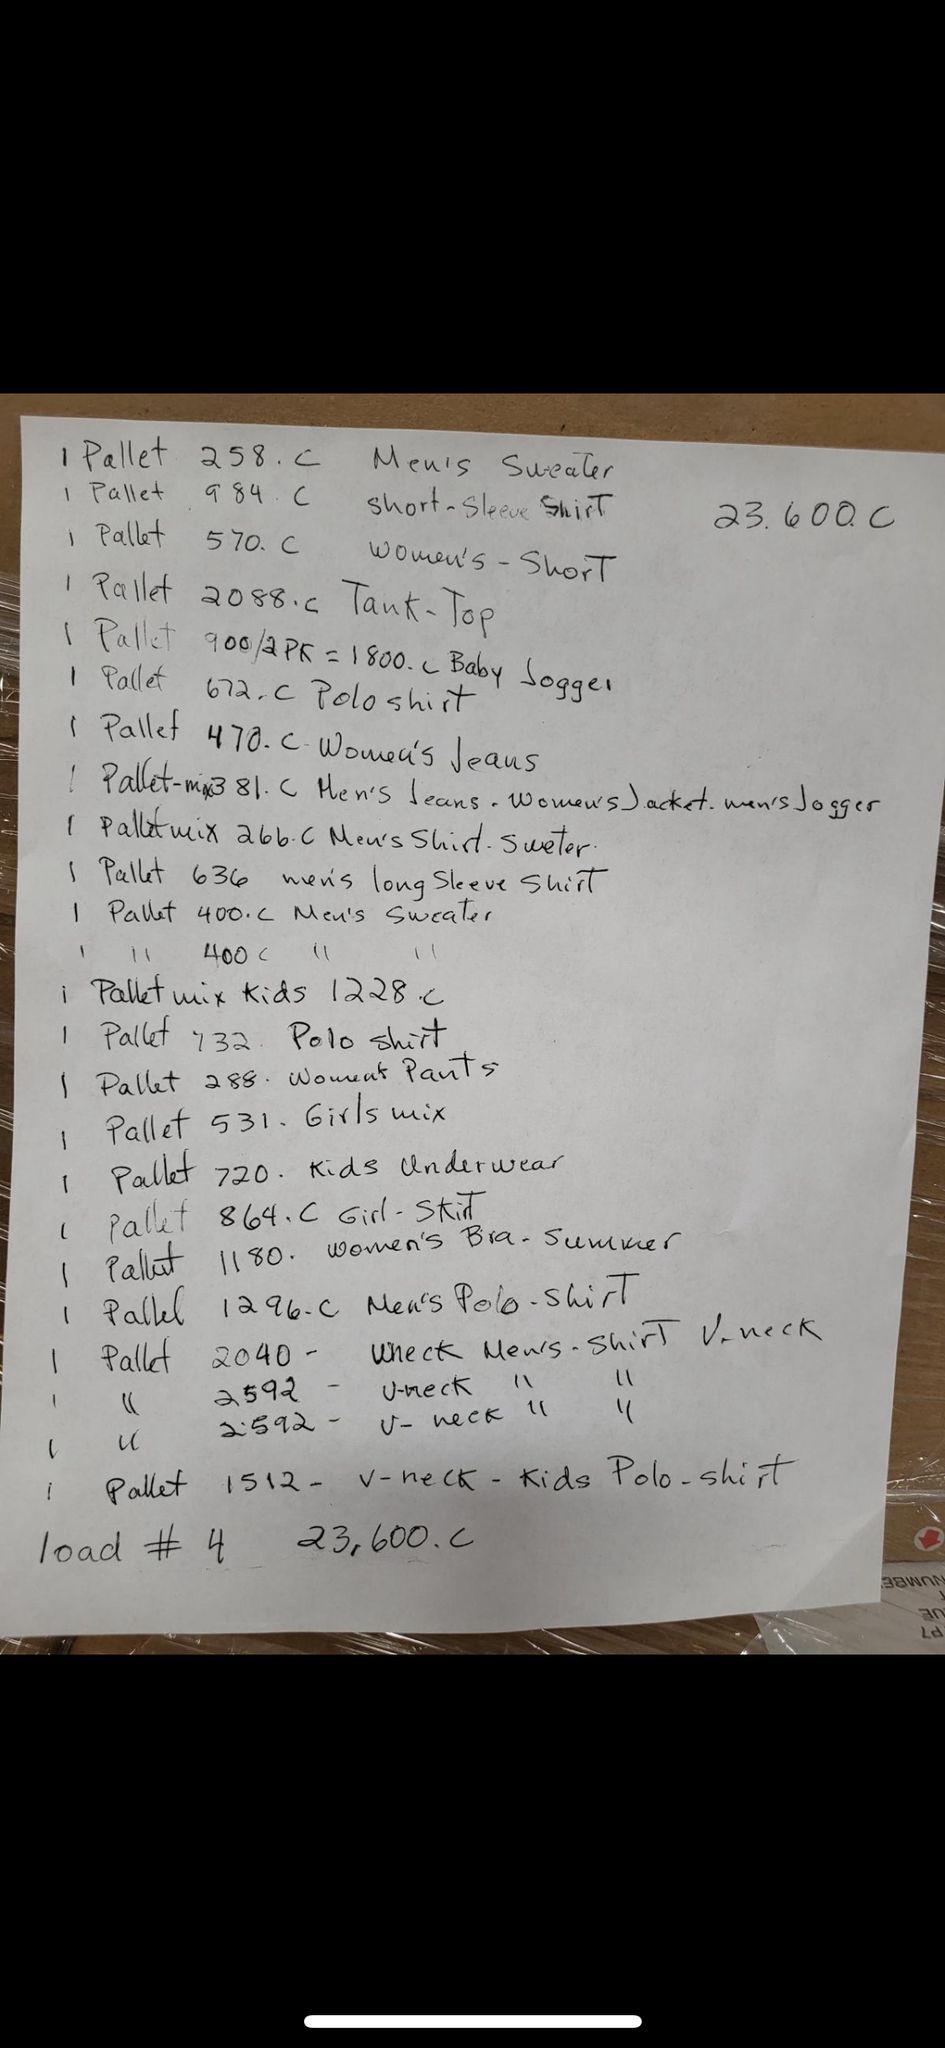 1 Pallet 258.C Men's Sweater
1 Pallet 984.C Short-Sleeve Shirt
23.600.C
1 Pallet 570.C Women's-Short
1 Pallet 2088.C Tank-Top
1 Pallet 900/2PK = 1800.C Baby Jogger
1 Pallet 672.C Polo shirt
1 Pallet 470.C-Women's Jeans
1 Pallet-mix381.C Men's Jeans. Women'sJacket. men's Jogger
1 Pallet mix 266.C Men's Shirt. Sweter.
1 Pallet 636 men's long Sleeve Shirt
1 Pallet 400.C Men's Sweater
1 " 400 C " "
1 Pallet mix Kids 1228.C
1 Pallet 732. Polo shirt
1 Pallet 288. Women's Pants
1 Pallet 531. Girls mix
1 Pallet 720. Kids Underwear
1 Pallet 864.C Girl-Skirt
1 Pallet 1180. Women's Bra-Summer
1 Pallet 1296.C Men's Polo-Shirt
1 Pallet 2040 - Men's-Shirt V-neck
1 " 2592 - V-neck " "
1 " 2592 - V-neck " "
1 Pallet 1512 - V-neck - Kids Polo-shirt
load # 4 23,600.C